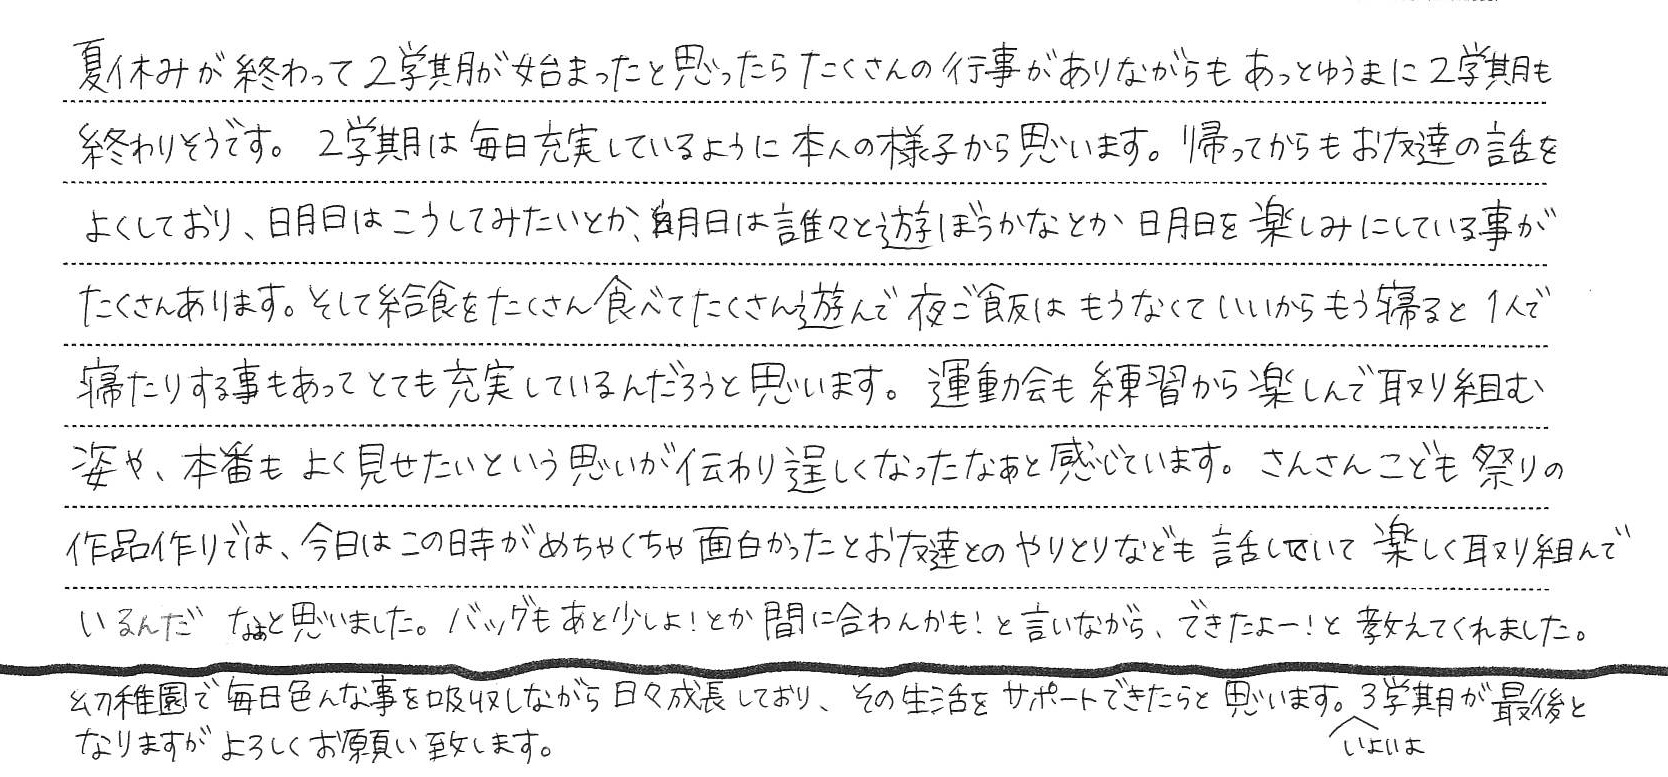 夏休みが終わって2学期が始まったと思ったらたくさんの行事がありながらもあっとゆうまに2学期も
終わりそうです。2学期は毎日充実しているように本人の様子から思います。帰ってからもお友達の話を
よくしており、明日はこうしてみたいとか、明日は誰々と遊ぼうかなとか明日を楽しみにしている事が
たくさんあります。そして給食をたくさん食べてたくさん遊んで夜ご飯はもうなくていいからもう寝ると1人で
寝たりする事もあってとても充実しているんだろうと思います。運動会も練習から楽しんで取り組む
姿や、本番もよく見せたいという思いが伝わり逞しくなったなぁと感じています。さんさんこども祭りの
作品作りでは、今日はこの時がめちゃくちゃ面白かったとお友達とのやりとりなども話していて楽しく取り組んで
いるんだなぁと思いました。バッグもあと少しよ!とか間に合わんかも!と言いながら、できたよー!と教えてくれました。
幼稚園で毎日色んな事を吸収しながら日々成長しており、その生活をサポートできたらと思います。いよいよ3学期が最後と
なりますがよろしくお願い致します。